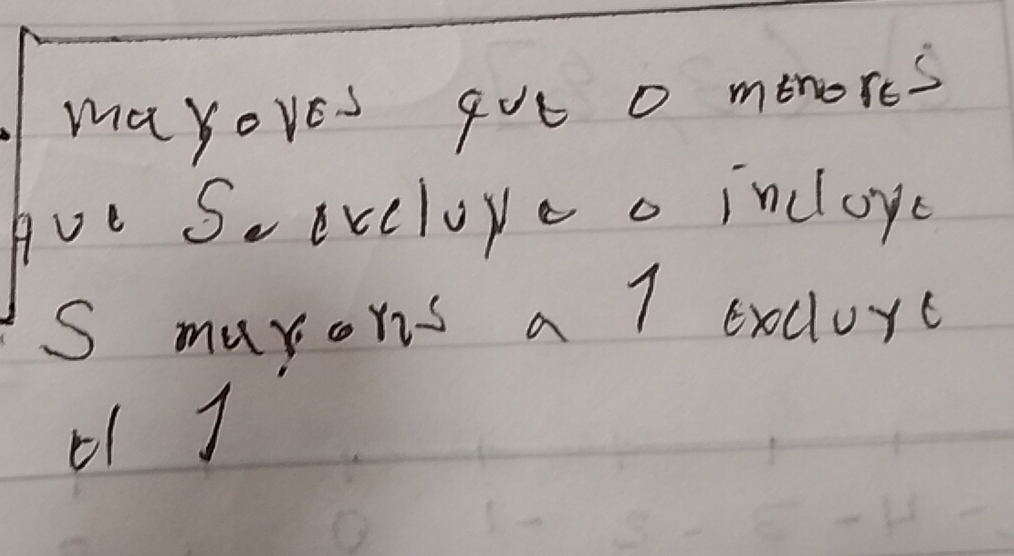 mayores que o menores
que Se excluye o incluye
S mayores a 1 excluye
el 1